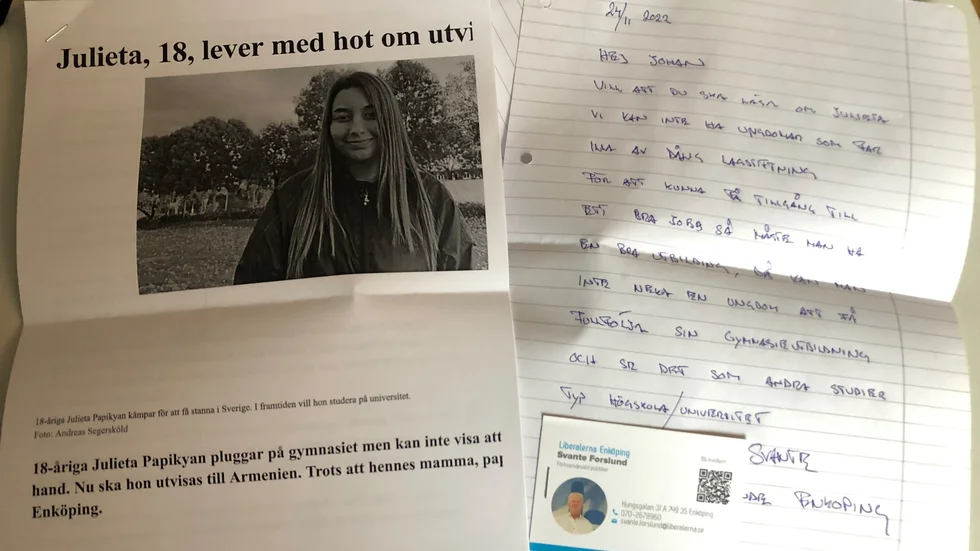 Julieta, 18, lever med hot om utvi
18-åriga Julieta Papikyan kämpar för att få stanna i Sverige. I framtiden vill hon studera på universitet.
Foto: Andreas Segersköld
18-åriga Julieta Papikyan pluggar på gymnasiet men kan inte visa att
hand. Nu ska hon utvisas till Armenien. Trots att hennes mamma, pap
Enköping.
24/11 2022
HEJ JOHAN
VILL ATT DU SKA LÄSA OM JULIETA
VI KAN INTE HA UNGDOMAR SOM FAR
ILLA AV DÅLIG LAGSTIFTNING
FÖR ATT KUNNA FÅ TILLGÅNG TILL
ETT BRA JOBB SÅ MÅSTE MAN HA
EN BRA UTBILDNING, DÅ KAN MAN
INTE NEKA EN UNGDOM ATT FÅ
FULLFÖLJA SIN GYMNASIEUTBILDNING
OCH SE DET SOM ANDRA STUDIER
TYP HÖGSKOLA/UNIVERSITET
SVANTE
ENKÖPING
Liberalerna Enköping
Svante Forslund
Förtroendevald politiker
Bli medlem
Kungsgatan 31 A 749 35 Enköping
070-2678960
svante.forslund@liberalerna.se